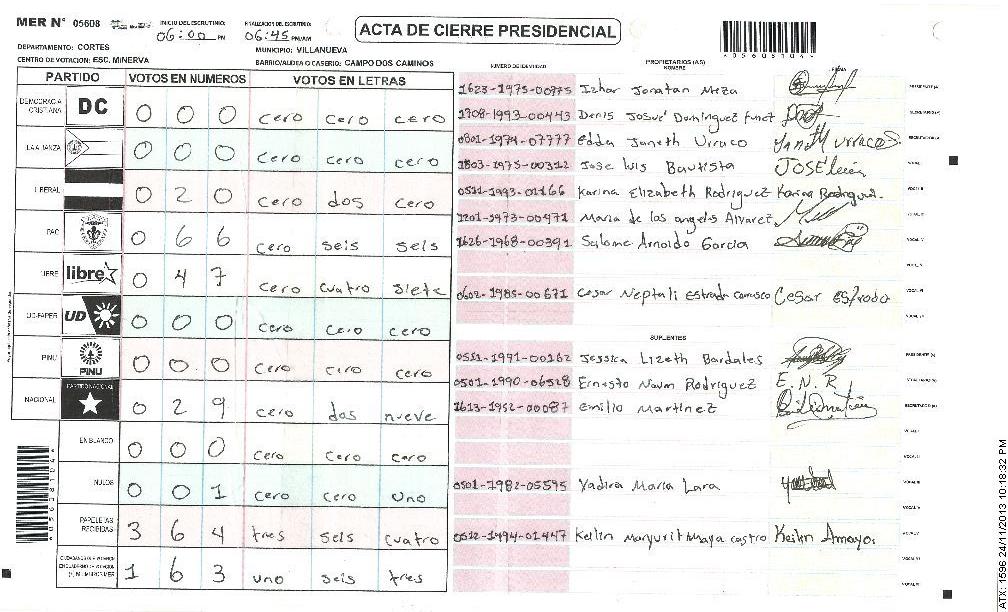 MER N° 05608
INICIO DEL ESCRUTINIO: 06:00 PM
FINALIZACION DEL ESCRUTINIO: 06:45 PM/AM
ACTA DE CIERRE PRESIDENCIAL
*05638104*
DEPARTAMENTO: CORTES
MUNICIPIO: VILLANUEVA
CENTRO DE VOTACION: ESC. MINERVA
BARRIO/ALDEA O CASERIO: CAMPO DOS CAMINOS
PARTIDO VOTOS EN NUMEROS VOTOS EN LETRAS
DEMOCRACIA CRISTIANA DC 0 0 0 cero cero cero
LA ALIANZA 0 0 0 cero cero cero
LIBERAL 0 2 0 cero dos cero
PAC 0 6 6 cero seis seis
LIBRE libre 0 4 7 cero cuatro siete
UD-FAPER UD 0 0 0 cero cero cero
PINU PINU 0 0 0 cero cero cero
NACIONAL PARTIDO NACIONAL 0 2 9 cero dos nueve
EN BLANCO 0 0 0 cero cero cero
NULOS 0 0 1 cero cero uno
PAPELETAS RECIBIDAS 3 6 4 tres seis cuatro
1 6 3 uno seis tres
NUMERO DE IDENTIDAD PROPIETARIOS (AS) NOMBRE FIRMA
1623-1975-00975 Izhar Jonatan Meza PRESIDENTE (A)
1708-1993-00443 Denis Josué Dominguez Funet SECRETARIO (A)
0801-1974-07777 Edda Janeth Urraco
1803-1975-00312 Jose luis Bautista
0511-1993-01166 Karina Elizabeth Rodriguez Karina Rodriguez. VOCAL II
1201-1973-00971 Maria de los angeles Alvarez
1626-1968-00391 Salome Arnoldo Garcia
0602-1985-00671 Cesar Neptali Estrada carrasco Cesar Estrada
SUPLENTES
0511-1991-00162 Jessica Lizeth Bardales PRESIDENTE (A)
0501-1990-06528 Ernesto Naum Rodriguez E.N.R
1613-1952-00087 Emilio Martinez
0501-1982-05595 Yadira Maria Lara
Keilin Amaya.
*05638104*
ATX: 1596 24/11/2013 10:18:32 PM